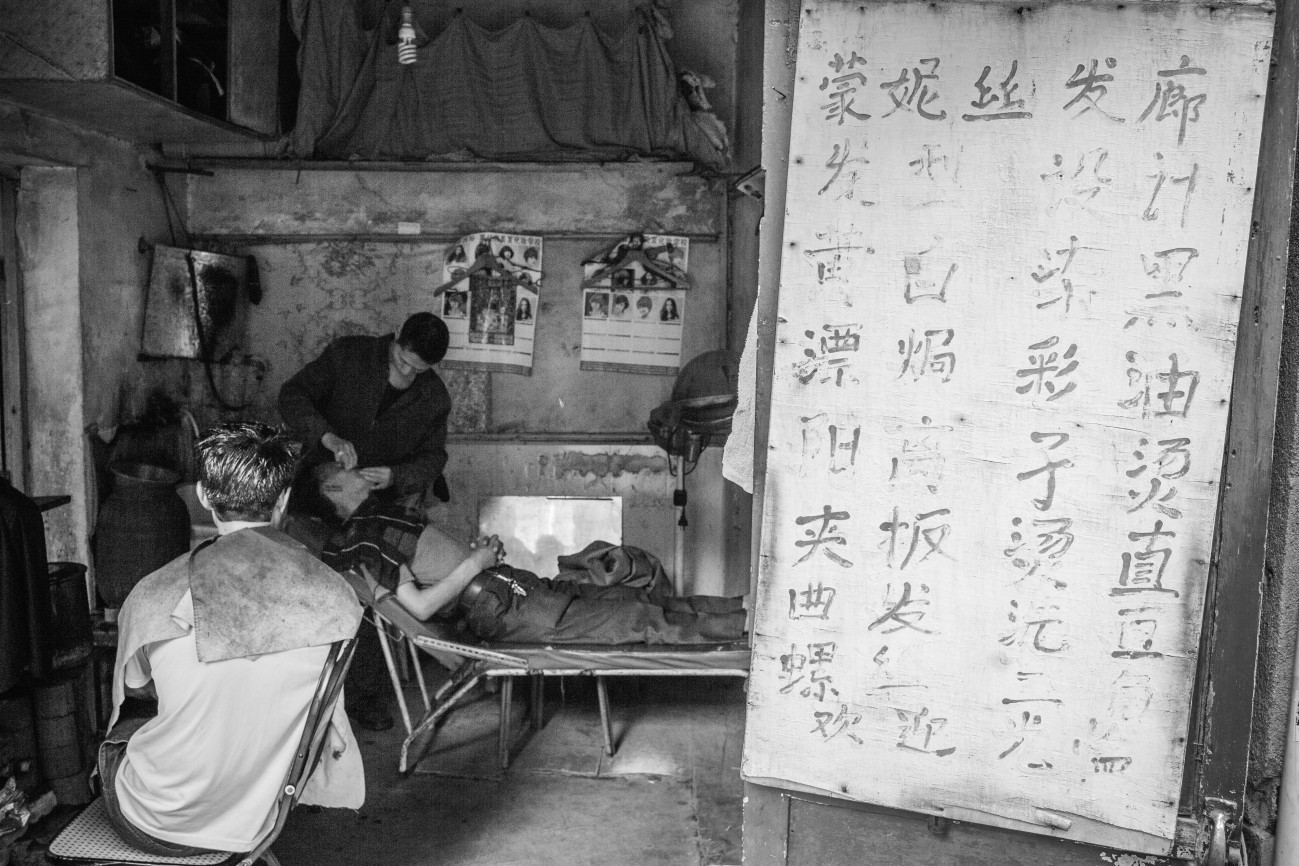 蒙妮丝发廊
发型设计
黄白紫黑
漂焗彩油
阳离子烫
夹板烫直
曲发洗
螺丝
欢迎光临